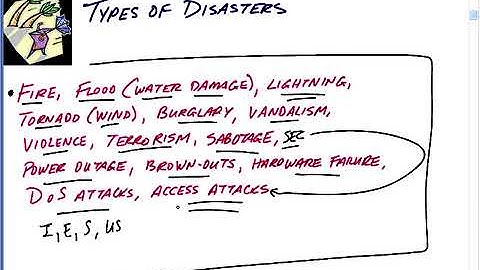 TYPES OF DISASTERS
• FIRE, FLOOD (WATER DAMAGE), LIGHTNING,
TORNADO (WIND), BURGLARY, VANDALISM,
VIOLENCE, TERRORISM, SABOTAGE, SEC
POWER OUTAGE, BROWN-OUTS, HARDWARE FAILURE,
DoS ATTACKS, ACCESS ATTACKS
I, E, S, US